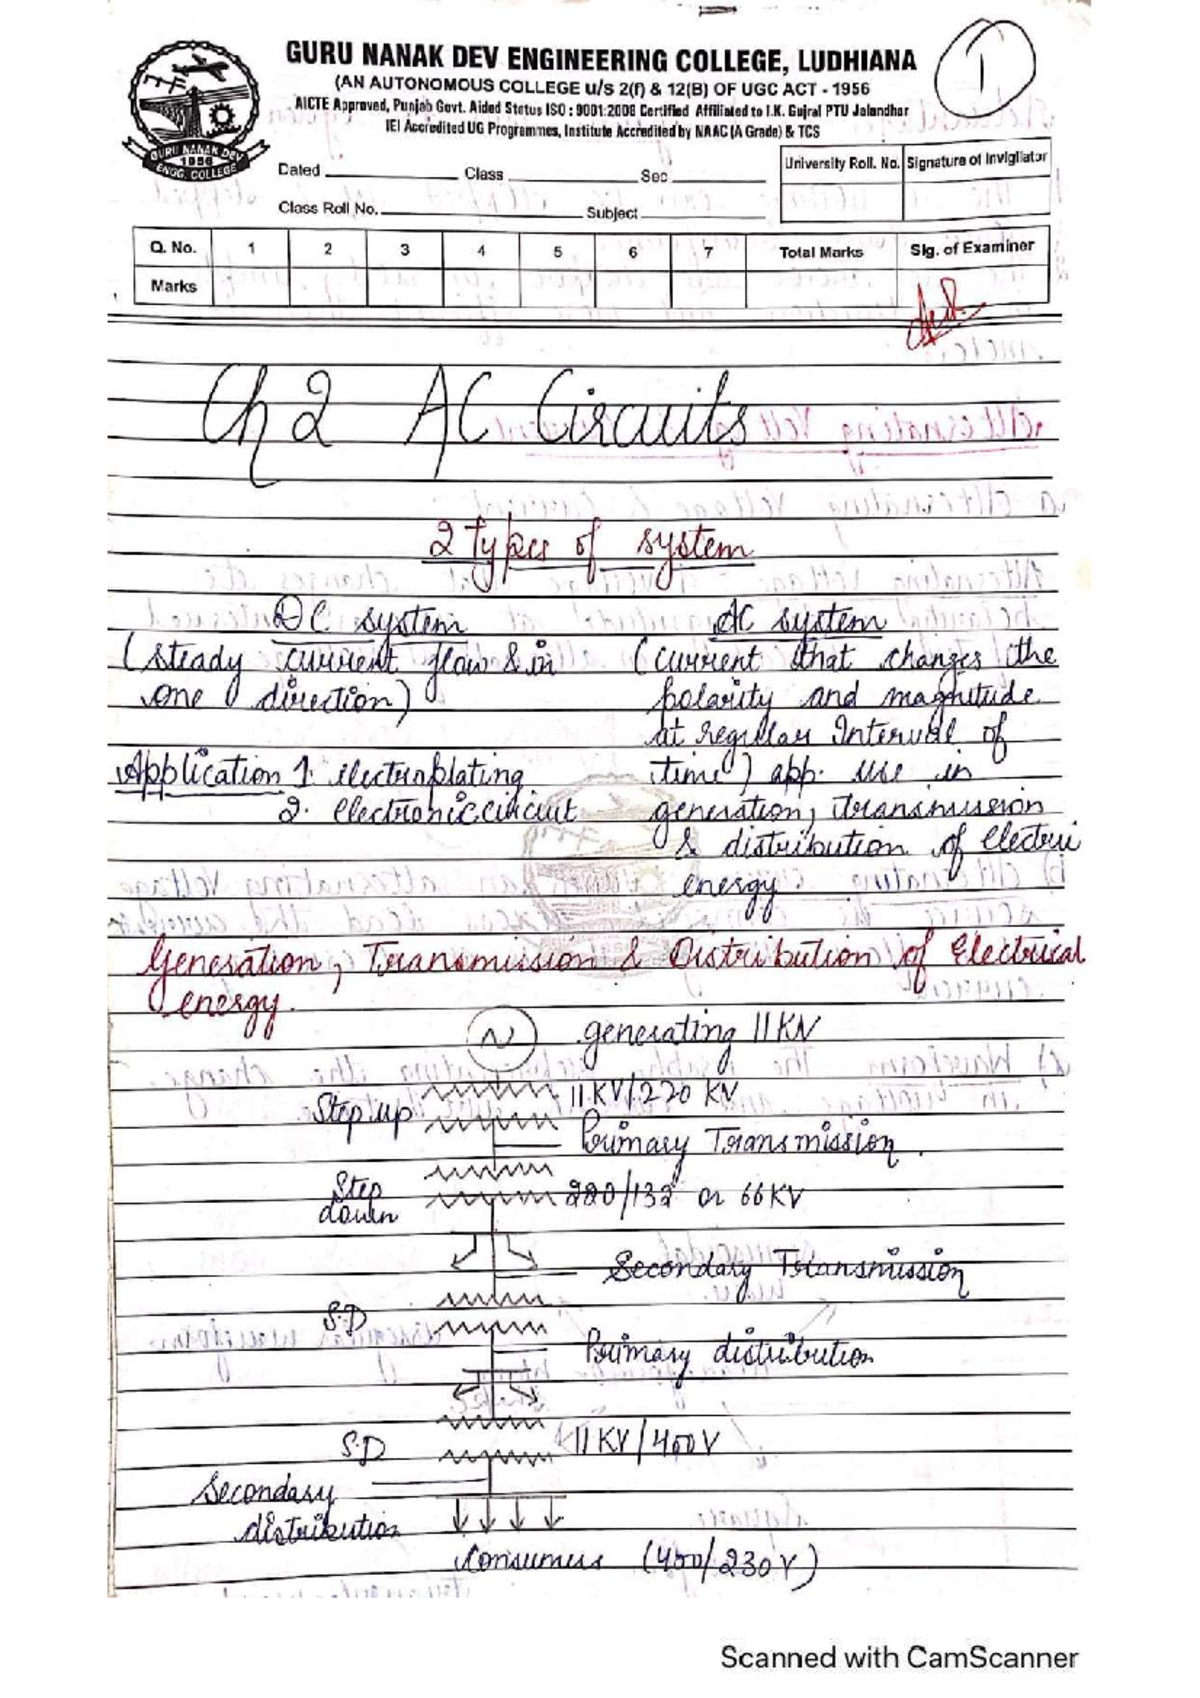 GURU NANAK DEV ENGINEERING COLLEGE, LUDHIANA
(AN AUTONOMOUS COLLEGE u/s 2(f) & 12(B) OF UGC ACT - 1956
AICTE Approved, Punjab Govt. Aided Status ISO : 9001:2008 Certified Affiliated to I.K. Gujral PTU Jalandhar
IEI Accredited UG Programmes, Institute Accredited by NAAC (A Grade) & TCS
1
GURU NANAK DEV
1956
ENGG. COLLEGE
Dated Class Sec
University Roll. No. Signature of Invigilator
Class Roll No. Subject
Q. No. 1 2 3 4 5 6 7 Total Marks Sig. of Examiner
Marks
Ch 2 AC Circuits
2 types of system
DC system
(steady current flow & in
one direction)
Application 1. electroplating
2. electronic circuit
AC system
(current that changes the
polarity and magnitude
at regular Interval of
time) app. use in
generation, transmission
& distribution of electri
energy.
Generation, Transmission & Distribution of Electrical
energy.
N generating 11 KV
11 KV/220 KV
Step up
Primary Transmission.
Step
down
220/132 or 66 KV
Secondary Transmission
S.D
Primary distribution
S.D
11 KV/400 V
Secondary
distribution
Consumers (400/230 V)
Scanned with CamScanner